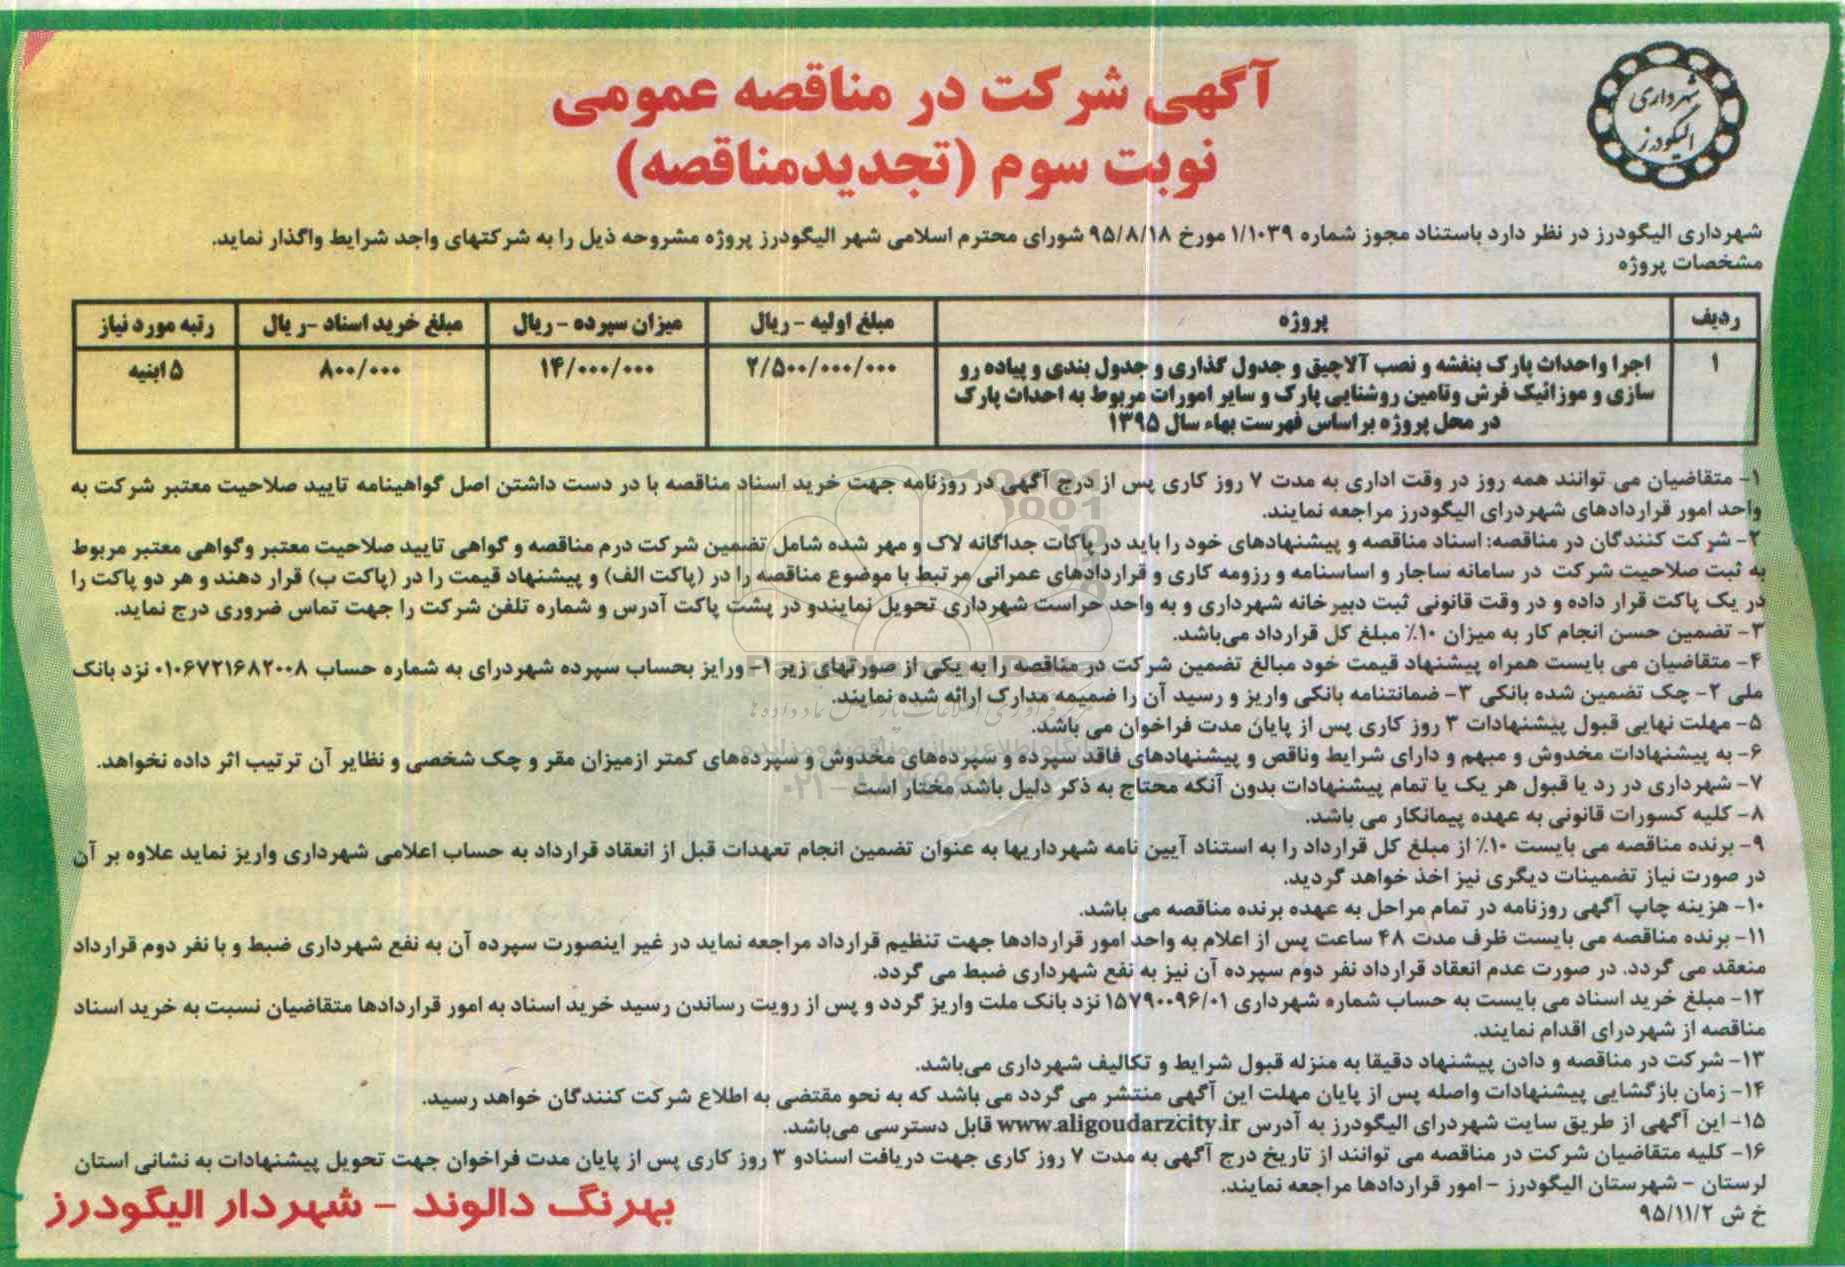 شهرداری
الیگودرز
آگهی شرکت در مناقصه عمومی
نوبت سوم (تجدیدمناقصه)
شهرداری الیگودرز در نظر دارد باستناد مجوز شماره ۱/۱۰۳۹ مورخ ۹۵/۸/۱۸ شورای محترم اسلامی شهر الیگودرز پروژه مشروحه ذیل را به شرکتهای واجد شرایط واگذار نماید.
مشخصات پروژه
ردیف پروژه مبلغ اولیه - ریال میزان سپرده - ریال مبلغ خرید اسناد -ریال رتبه مورد نیاز
۱ اجرا واحداث پارک بنفشه و نصب آلاچیق و جدول گذاری و جدول بندی و پیاده رو ۲/۵۰۰/۰۰۰/۰۰۰ ۱۴/۰۰۰/۰۰۰ ۸۰۰/۰۰۰ ۵ ابنیه
سازی و موزائیک فرش وتامین روشنایی پارک و سایر امورات مربوط به احداث پارک
در محل پروژه براساس فهرست بهاء سال ۱۳۹۵
۱- متقاضیان می توانند همه روز در وقت اداری به مدت ۷ روز کاری پس از درج آگهی در روزنامه جهت خرید اسناد مناقصه با در دست داشتن اصل گواهینامه تایید صلاحیت معتبر شرکت به
واحد امور قراردادهای شهردرای الیگودرز مراجعه نمایند.
۲- شرکت کنندگان در مناقصه: اسناد مناقصه و پیشنهادهای خود را باید در پاکات جداگانه لاک و مهر شده شامل تضمین شرکت درم مناقصه و گواهی تایید صلاحیت معتبر وگواهی معتبر مربوط
به ثبت صلاحیت شرکت در سامانه ساجار و اساسنامه و رزومه کاری و قراردادهای عمرانی مرتبط با موضوع مناقصه را در (پاکت الف) و پیشنهاد قیمت را در (پاکت ب) قرار دهند و هر دو پاکت را
در یک پاکت قرار داده و در وقت قانونی ثبت دبیرخانه شهرداری و به واحد حراست شهرداری تحویل نمایندو در پشت پاکت آدرس و شماره تلفن شرکت را جهت تماس ضروری درج نماید.
۳- تضمین حسن انجام کار به میزان ۱۰٪ مبلغ کل قرارداد می‌باشد.
۴- متقاضیان می بایست همراه پیشنهاد قیمت خود مبالغ تضمین شرکت در مناقصه را به یکی از صورتهای زیر ۱- ورایز بحساب سپرده شهردرای به شماره حساب ۰۱۰۶۷۲۱۶۸۲۰۰۸ نزد بانک
ملی ۲- چک تضمین شده بانکی ۳- ضمانتنامه بانکی واریز و رسید آن را ضمیمه مدارک ارائه شده نمایند.
۵- مهلت نهایی قبول پیشنهادات ۳ روز کاری پس از پایان مدت فراخوان می باشد.
۶- به پیشنهادات مخدوش و مبهم و دارای شرایط وناقص و پیشنهادهای فاقد سپرده و سپرده‌های مخدوش و سپرده‌های کمتر ازمیزان مقر و چک شخصی و نظایر آن ترتیب اثر داده نخواهد.
۷- شهرداری در رد یا قبول هر یک یا تمام پیشنهادات بدون آنکه محتاج به ذکر دلیل باشد مختار است
۸- کلیه کسورات قانونی به عهده پیمانکار می باشد.
۹- برنده مناقصه می بایست ۱۰٪ از مبلغ کل قرارداد را به استناد آیین نامه شهرداریها به عنوان تضمین انجام تعهدات قبل از انعقاد قرارداد به حساب اعلامی شهرداری واریز نماید علاوه بر آن
در صورت نیاز تضمینات دیگری نیز اخذ خواهد گردید.
۱۰- هزینه چاپ آگهی روزنامه در تمام مراحل به عهده برنده مناقصه می باشد.
۱۱- برنده مناقصه می بایست ظرف مدت ۴۸ ساعت پس از اعلام به واحد امور قراردادها جهت تنظیم قرارداد مراجعه نماید در غیر اینصورت سپرده آن به نفع شهرداری ضبط و با نفر دوم قرارداد
منعقد می گردد. در صورت عدم انعقاد قرارداد نفر دوم سپرده آن نیز به نفع شهرداری ضبط می گردد.
۱۲- مبلغ خرید اسناد می بایست به حساب شماره شهرداری ۱۵۷۹۰۰۹۶/۰۱ نزد بانک ملت واریز گردد و پس از رویت رساندن رسید خرید اسناد به امور قراردادها متقاضیان نسبت به خرید اسناد
مناقصه از شهردرای اقدام نمایند.
۱۳- شرکت در مناقصه و دادن پیشنهاد دقیقا به منزله قبول شرایط و تکالیف شهرداری می‌باشد.
۱۴- زمان بازگشایی پیشنهادات واصله پس از پایان مهلت این آگهی منتشر می گردد می باشد که به نحو مقتضی به اطلاع شرکت کنندگان خواهد رسید.
۱۵- این آگهی از طریق سایت شهردرای الیگودرز به آدرس www.aligoudarzcity.ir قابل دسترسی می‌باشد.
۱۶- کلیه متقاضیان شرکت در مناقصه می توانند از تاریخ درج آگهی به مدت ۷ روز کاری جهت دریافت اسنادو ۳ روز کاری پس از پایان مدت فراخوان جهت تحویل پیشنهادات به نشانی استان
لرستان - شهرستان الیگودرز - امور قراردادها مراجعه نمایند.
خ ش ۹۵/۱۱/۲
بهرنگ دالوند - شهردار الیگودرز